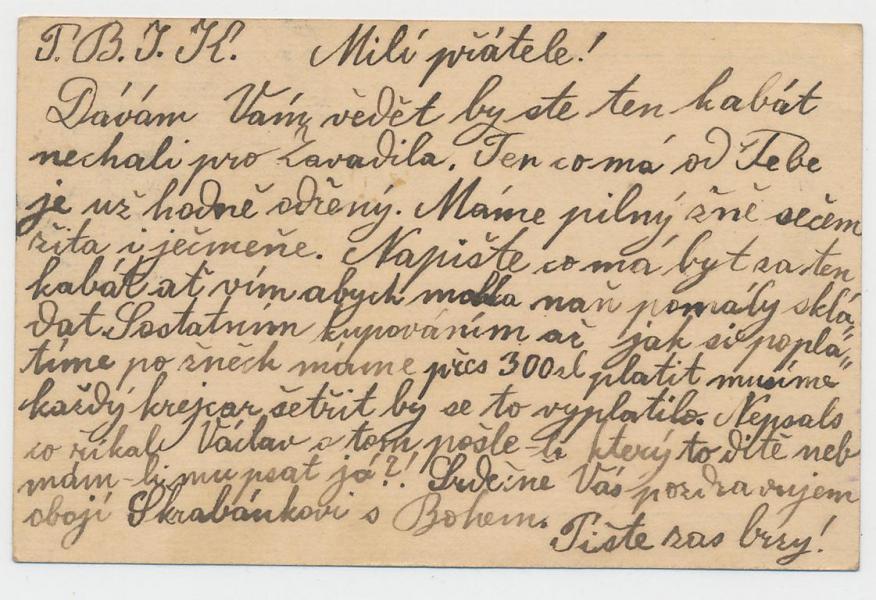 P. B. J. K. Milí přátele!
Dávám Vám vědět by ste ten kabát
nechali pro Zavadila. Ten co má od Tebe
je už hodně odřený. Máme pilný žně sečem
žita i ječmeňe. Napište co má byt za ten
kabát ať vím abych mohla naň pomály sklá-
dat. Sostatním kupováním až jak si popla-
tíme po žněch máme přes 300 zl platit musíme
každý krejcar šetřit by se to vyplatilo. Nepsals
co říkal Václav o tom pošle-li který to ditě neb
mám-li mu psat já?! Srdečně Vás pozdravujem
obojí Skrabánkovi s Bohem.
Pište zas brzy!